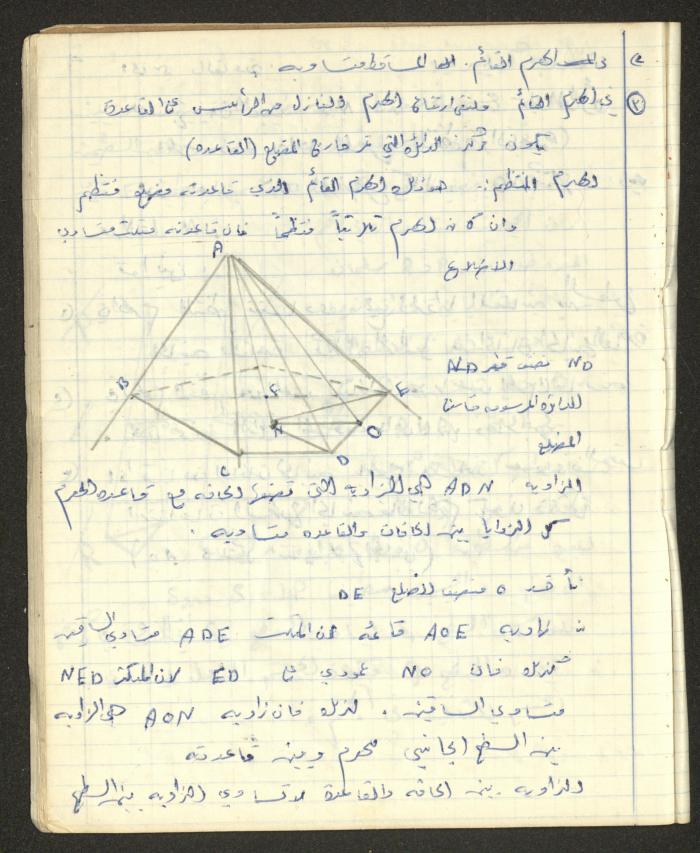 ٢) الهرم القائم. المساقط متساويه
٣) في الهرم القائم ارتفاع الهرم والنازل من الرأس على القاعدة
يكون مركز الدائره التي خارج المضلع (القاعده)
الهرم المنتظم: هو ذلك الهرم القائم الذي قاعدته مضلع منتظم
وان كان الهرم ثلاثياً منتظماً فان قاعدته مثلث متساوي
الاضلاع
A
B
F
E
N
O
C
D
ND نصف قطر
الدائره المرسومه خارج
المضلع
الزاويه ADN هي الزاويه التي تصنعها الحافه مع قاعدة الهرم
الزوايا بين الحافات والقاعده متساويه.
نأخذ O منتصف الضلع DE
زاويه AOE قائمه لان المثلث ADE متساوي الساقين
كذلك فان NO عمودي على ED لان المثلث NED
متساوي الساقين. لذلك فان زاويه AON هي الزاويه
بين السطح الجانبي للهرم وبين قاعدته
الزاويه بين الحافه والقاعدة لا تساوي الزاويه بين السطح